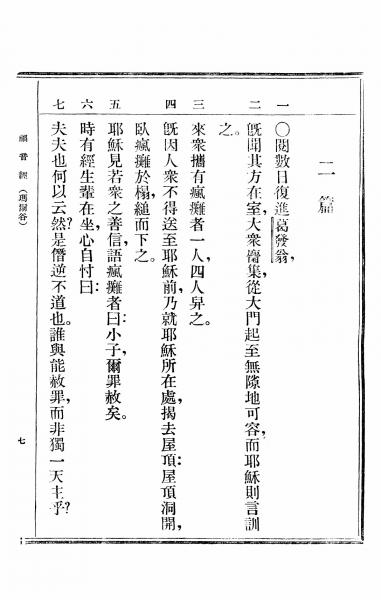 二篇
一 〇閱數日復進葛發翁，
二 旣聞其方在室，大衆麕集，從大門起至無隙地可容，而耶穌則言訓
之。
三 來衆攜有瘋癱者一人，四人舁之。
四 旣因人衆不得送至耶穌前，乃就耶穌所在處，揭去屋頂：屋頂洞開，
臥瘋癱於榻，縋而下之。
五 耶穌見若衆之善信，語瘋癱者曰：小子，爾罪赦矣。
六 時有經生輩在坐，心自忖曰：
七 夫夫也何以云然？是僭逆不道也。誰與能赦罪，而非獨一天主乎？
福音經（瑪爾谷）
七